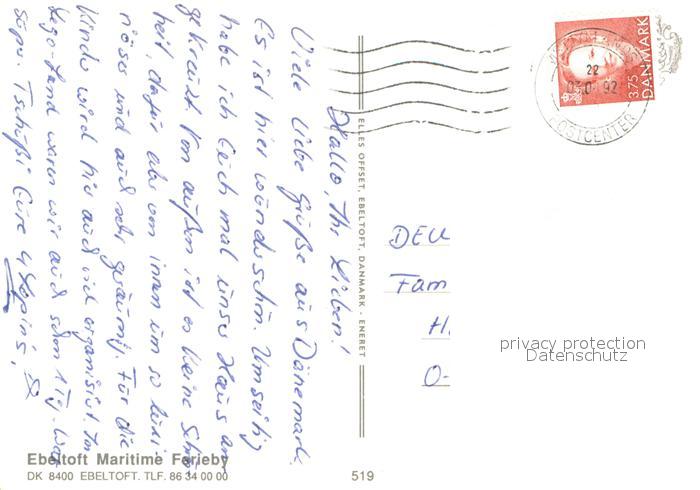 Hallo, Ihr Lieben!
Viele liebe Grüße aus Dänemark.
Es ist hier wunderschön. Umseitig
habe ich Euch mal unser Haus an-
gekreuzt. Von außen ist es keine Schön-
heit, dafür aber von innen um so luxu-
riöser und auch sehr geräumig. Für die
Kinder wird hier auch viel organisiert. Im
Lego-Land waren wir auch schon 1 Tg. War
super. Tschüßi Eure 4
DEU
Fam
H.
O-
ELLES OFFSET, EBELTOFT, DANMARK - ENERET
22
92
POSTCENTER
3.75 DANMARK
privacy protection
Datenschutz
Ebeltoft Maritime Ferieby
DK 8400 EBELTOFT. TLF. 86 34 00 00
519